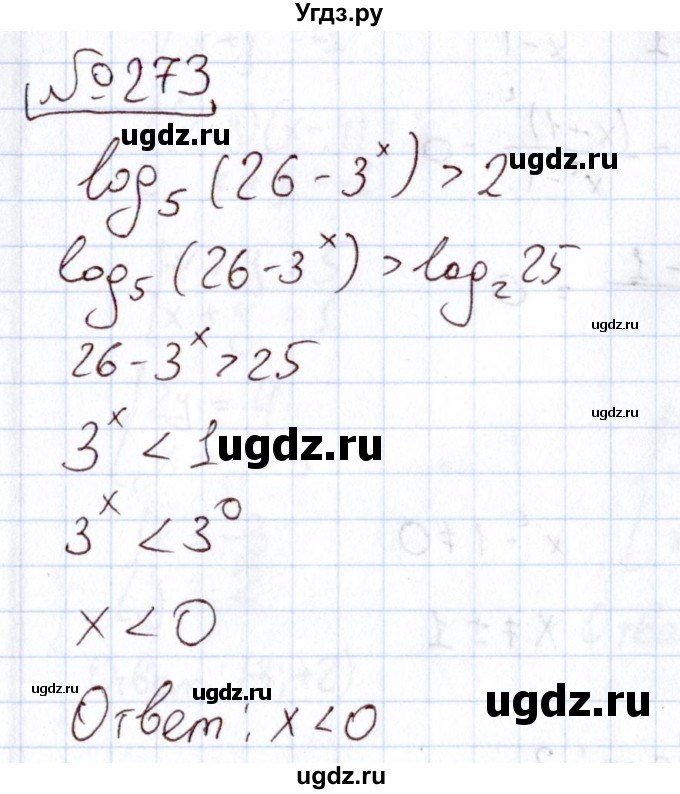 Угдз.ру
№273
ugdz.ru
log₅(26-3ˣ)>2
ugdz.ru
log₅(26-3ˣ)>log₂25
ugdz.ru
26-3ˣ>25
ugdz.ru
3ˣ<1
ugdz.ru
3ˣ<3⁰
x<0
ugdz.ru
ugdz.ru
ugdz.ru
Ответ: x<0
ugdz.ru